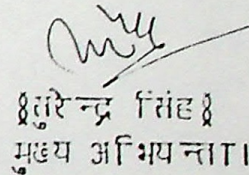 §सुरेन्द्र सिंह§
मुख्य अभियन्ता।